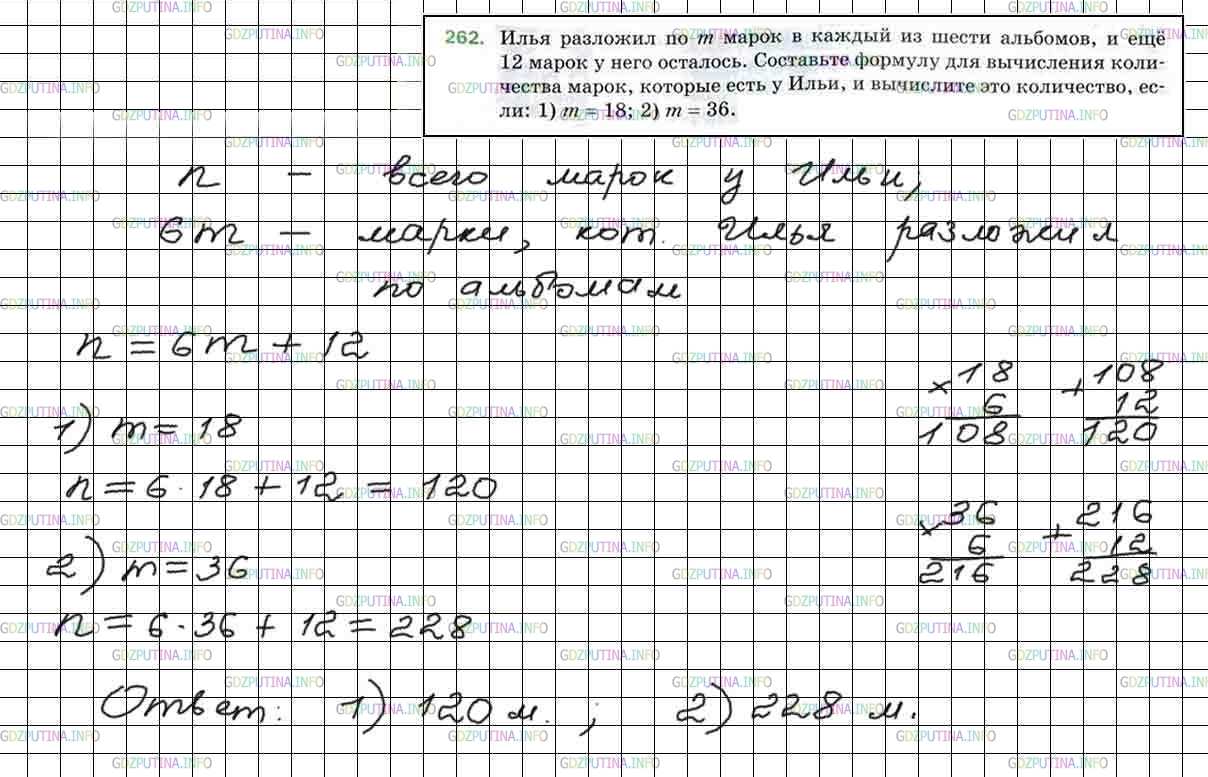 262. Илья разложил по m марок в каждый из шести альбомов, и ещё
12 марок у него осталось. Составьте формулу для вычисления коли-
чества марок, которые есть у Ильи, и вычислите это количество, ес-
ли: 1) m = 18; 2) m = 36.
n – всего марок у Ильи;
6m – марки, кот. Илья разложил
по альбомам
n = 6m + 12
1) m = 18
n = 6·18 + 12 = 120
2) m = 36
n = 6·36 + 12 = 228
× 18
6
108
+ 108
12
120
× 36
6
216
+ 216
12
228
Ответ: 1) 120 м. ; 2) 228 м.
GDZPUTINA.INFO